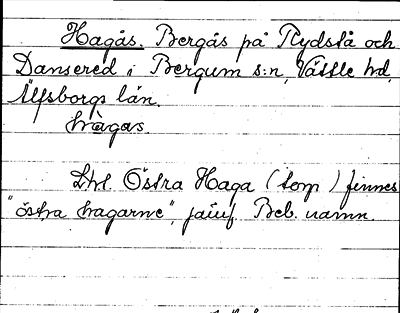 Hagås. Bergås på Rydstå och
Dansered i Bergum s:n, Vättle hd,
Älfsborgs län.
hàgas.
Lht. Östra Haga (torp) finnes
"östra hagarne", jämf. Beb. namn